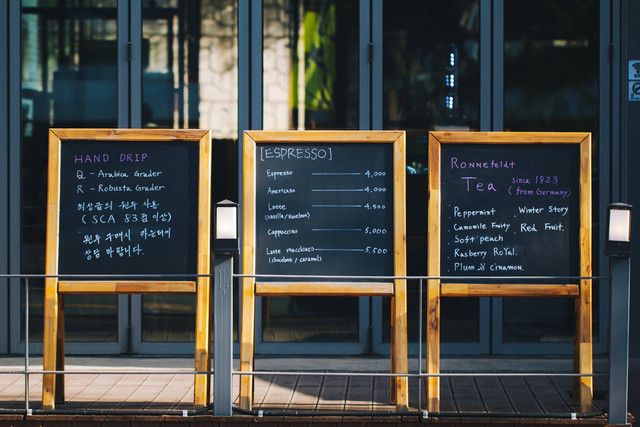 HAND DRIP
Q - Arabica Grader
R - Robusta Grader
최상급의 원두 사용
(SCA 83점 이상)
원두 구매시 카운터에
상담 바랍니다.
[ESPRESSO]
Espresso 4,000
Americano 4,000
Latte 4,500
(vanilla/Hazelnut)
Cappuccino 5,000
Latte macchiato 5,500
(chocolate / caramel)
Ronnefeldt
Tea since 1823
(from Germany)
· Peppermint
· Camomile Fruity
· Soft peach
· Rasberry Royal.
· Plum & Cinnamon.
· Winter Story
· Red Fruit.